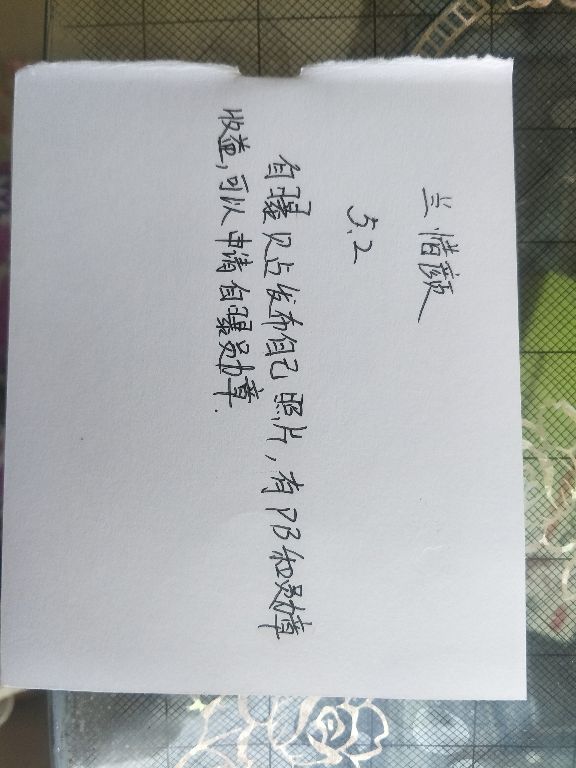 兰惜颜
5.2
自曝贝占发布自己照片，有PB和勋章
收益，可以申请自曝勋章.